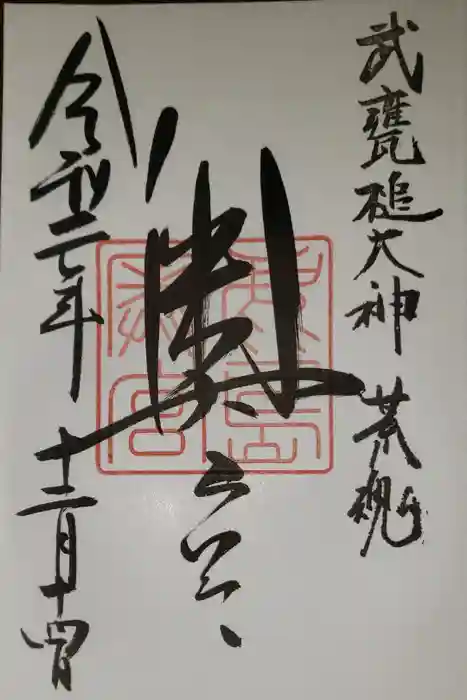 武甕槌大神 荒魂
奥之宮
令和二年十二月十四日